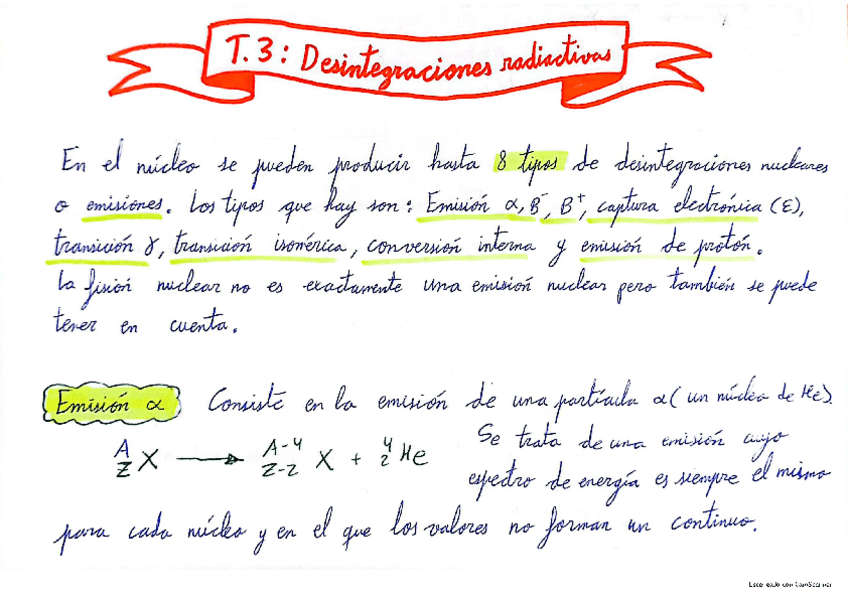 T.3: Desintegraciones radiactivas
En el núcleo se pueden producir hasta 8 tipos de desintegraciones nucleares
o emisiones. Los tipos que hay son: Emisión α, β⁻, β⁺, captura electrónica (ε),
transición γ, transición isomérica, conversión interna y emisión de protón.
La fisión nuclear no es exactamente una emisión nuclear pero también se puede
tener en cuenta.
Emisión α Consiste en la emisión de una partícula α (un núcleo de He).
Se trata de una emisión cuyo
A/Z X → A-4/Z-2 X + 4/2 He
espectro de energía es siempre el mismo
para cada núcleo y en el que los valores no forman un continuo.
Escaneado con CamScanner